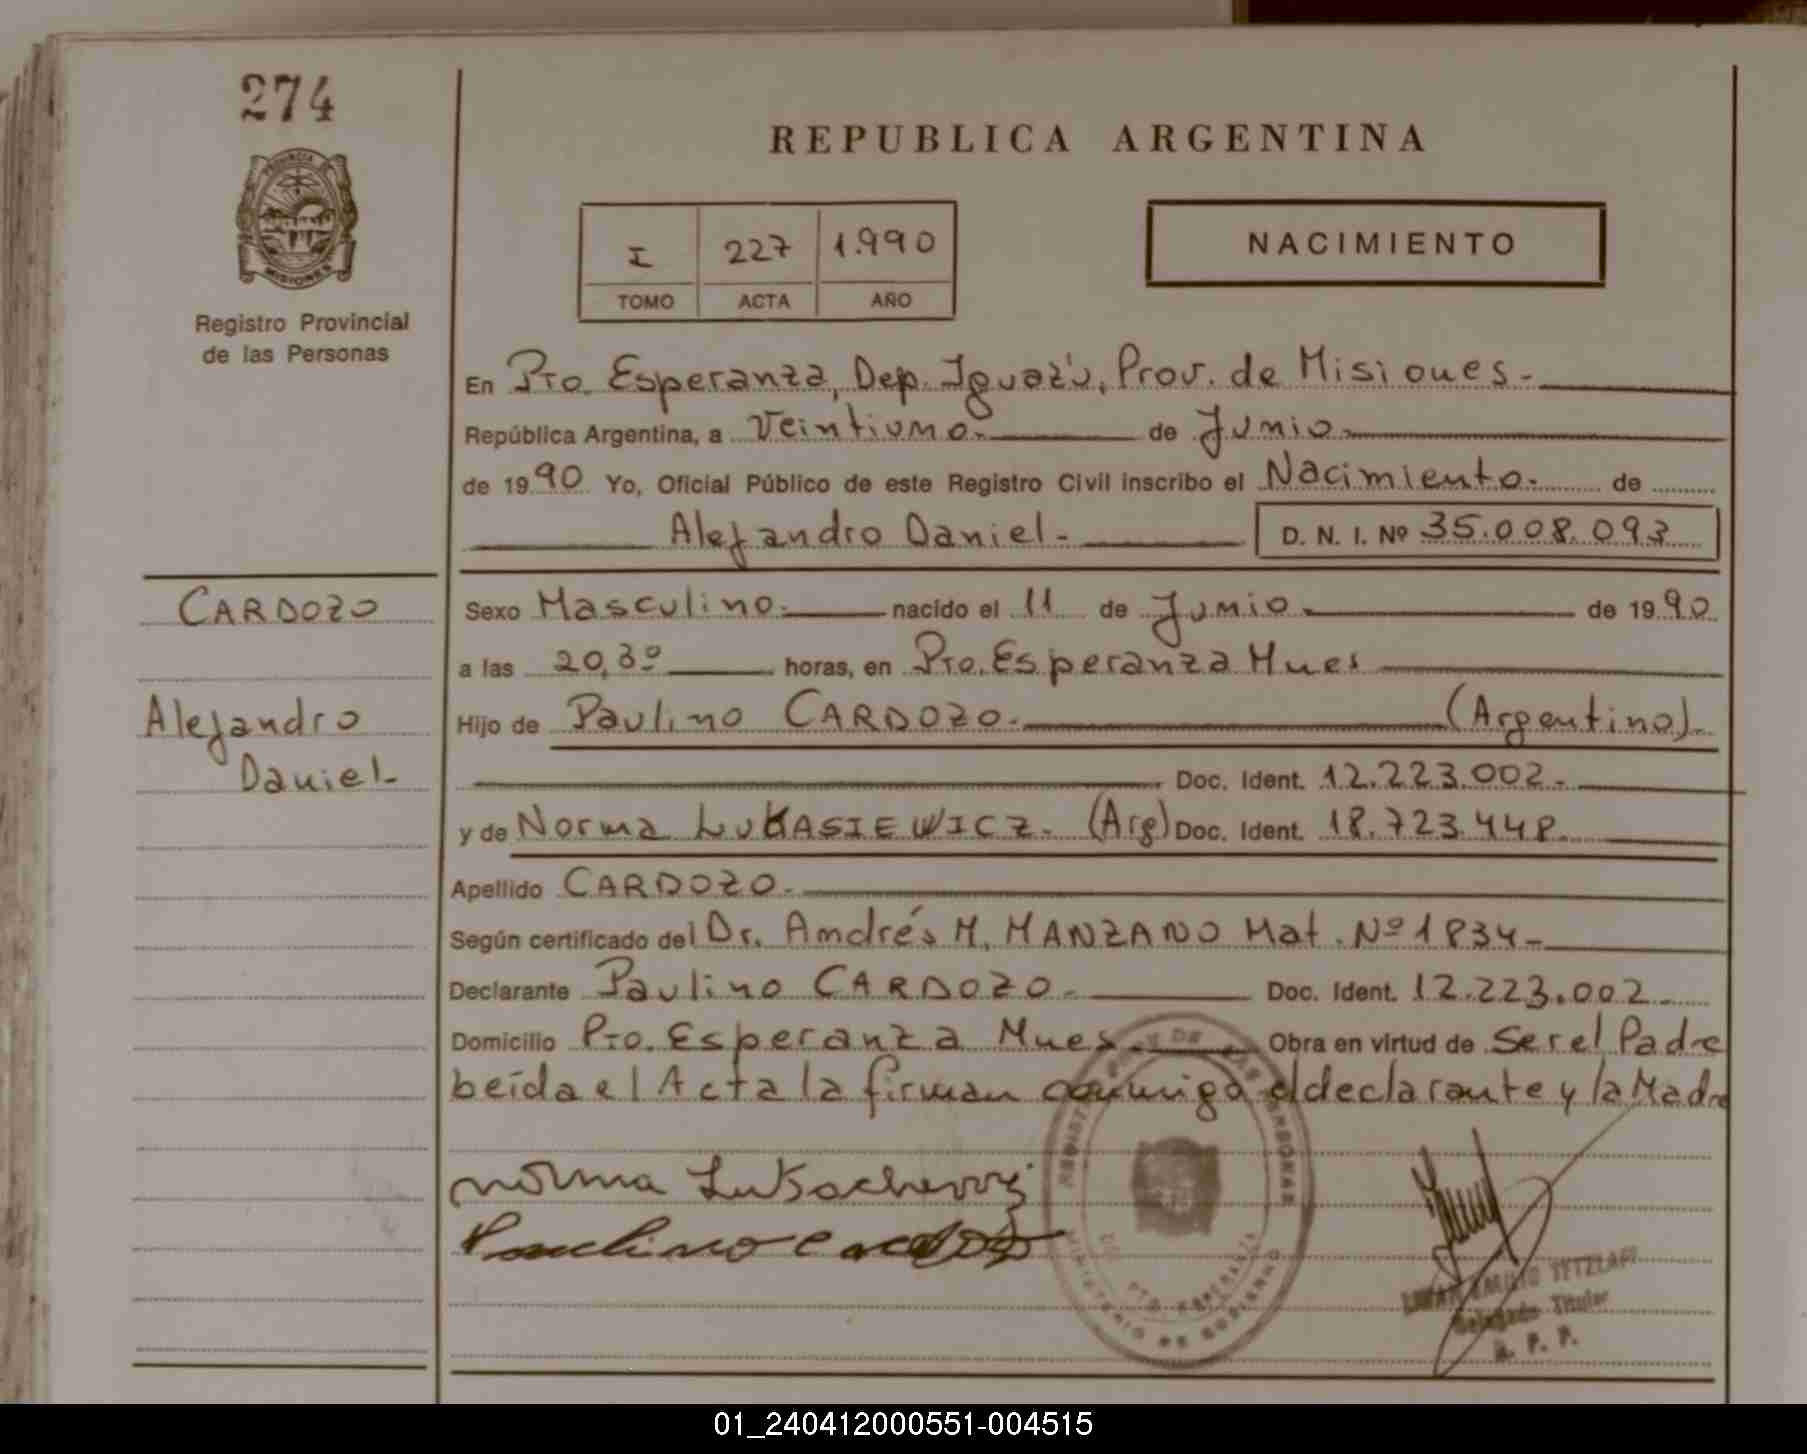 274
PROVINCIA DE
MISIONES
Registro Provincial
de las Personas
REPUBLICA ARGENTINA
I 227 1.990
TOMO ACTA AÑO
NACIMIENTO
En Pto. Esperanza, Dep. Iguazú, Prov. de Misiones.-
República Argentina, a Veintiuno.- de Junio.-
de 1990 Yo, Oficial Público de este Registro Civil inscribo el Nacimiento. de
Alejandro Daniel.- D. N. I. Nº 35.008.093
CARDOZO
Alejandro
Daniel-
Sexo Masculino.- nacido el 11 de Junio.- de 1990
a las 20,30 horas, en Pto. Esperanza Mnes
Hijo de Paulino CARDOZO.- (Argentino).-
Doc. Ident. 12.223.002.-
y de Norma LUKASIEWICZ. (Arg) Doc. Ident. 18.723.448.
Apellido CARDOZO.-
Según certificado del Dr. Andrés M. MANZANO Mat. Nº 1834-
Declarante Paulino CARDOZO.- Doc. Ident. 12.223.002.-
Domicilio Pto. Esperanza Mnes.- Obra en virtud de Ser el Padre
Leída el Acta la firman conmigo el declarante y la Madre
Norma
Paulino Cardozo
MINISTERIO DE GOBIERNO
PTO. ESPERANZA
EMILIO TETZLAFF
Delegado Titular
R. P. P.
01_240412000551-004515